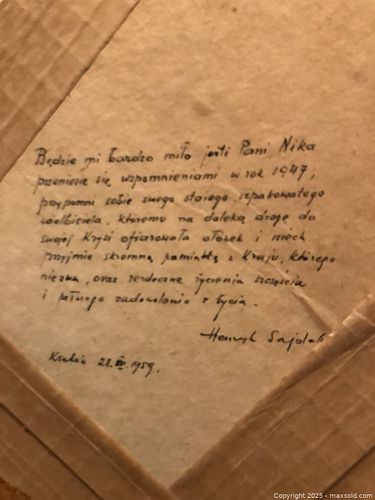 Będzie mi bardzo miło jeśli Pani Nika
przeniesie się wspomnieniami w rok 1947,
przypomni sobie swego starego, szpakowatego
wielbiciela, któremu na daleką drogę do
swojej Kryśi ofiarowała ołówek i niech
przyjmie skromną pamiątkę z Kraju, którego
nie zna, oraz serdeczne życzenia szczęścia
i pełnego zadowolenia z życia.
Henryk
Kraków 21.
1959.
Copyright 2025 - maxsold.com